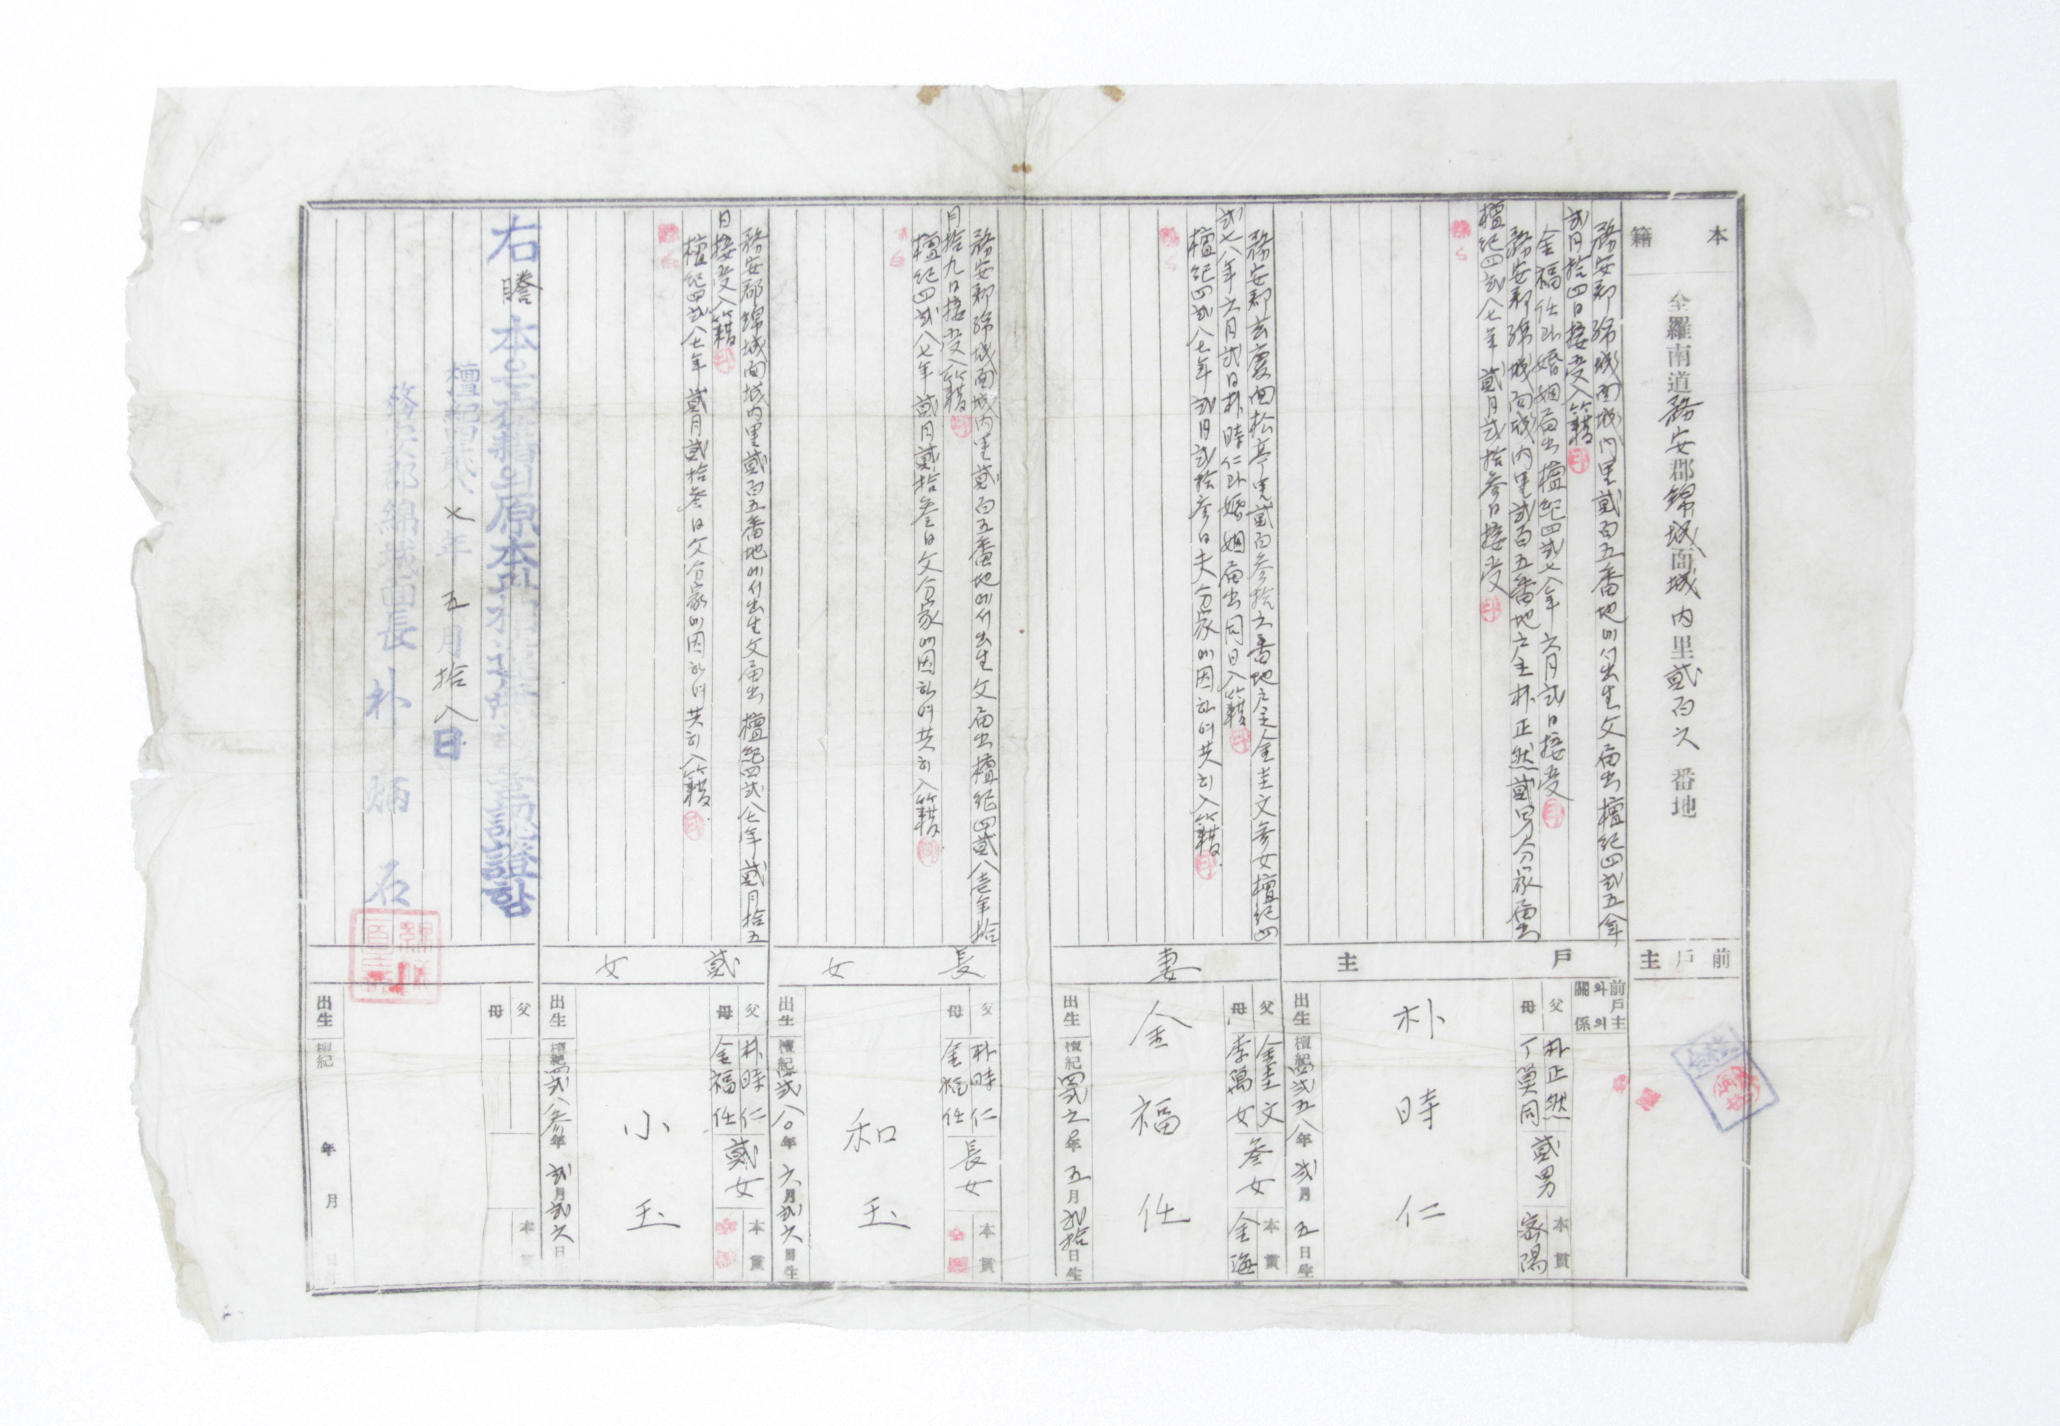 本籍
全羅南道務安郡綿城面城内里貳百六番地
前戶主
前戶主와의關係
務安郡綿城面城内里貳百五番地에서出生父届出檀紀四貳五八年
貳月拾四日接受入籍
金福任과婚姻届出檀紀四貳七八年六月貳日接受
務安郡綿城面城内里貳百五番地戶主朴正然貳男分家届出
檀紀四貳八七年貳月貳拾參日接受
戶主
父 朴正然
母 丁 同
貳男
本貫 密陽
朴時仁
出生 檀紀四貳五八年貳月五日生
務安郡玄慶面松亭里貳百參拾六番地戶主金圭文參女檀紀四
貳七八年六月貳日朴時仁과婚姻届出同日入籍
檀紀四貳八七年貳月貳拾參日夫分家에因하여共히入籍
妻
父 金圭文
母 李萬女
參女
本貫 金海
金福任
出生 檀紀四貳 年五月貳拾日生
務安郡綿城面城内里貳百五番地에서出生父届出檀紀四貳八壹年拾
月拾九日接受入籍
檀紀四貳八七年貳月貳拾參日父分家에因하여共히入籍
長女
父 朴時仁
母 金福任
長女
本貫
和玉
出生 檀紀四貳八〇年六月貳六日生
務安郡綿城面城内里貳百五番地에서出生父届出檀紀四貳八七年貳月拾五
日接受入籍
檀紀四貳八七年貳月貳拾參日父分家에因하여共히入籍
貳女
父 朴時仁
母 金福任
貳女
本貫
小玉
出生 檀紀四貳八參年貳月貳六日
右謄本은戶籍의原本과 認證함
檀紀四貳八 年五月拾八日
務安郡綿城面長朴炳石
父
母
本貫
出生 檀紀 年 月 日